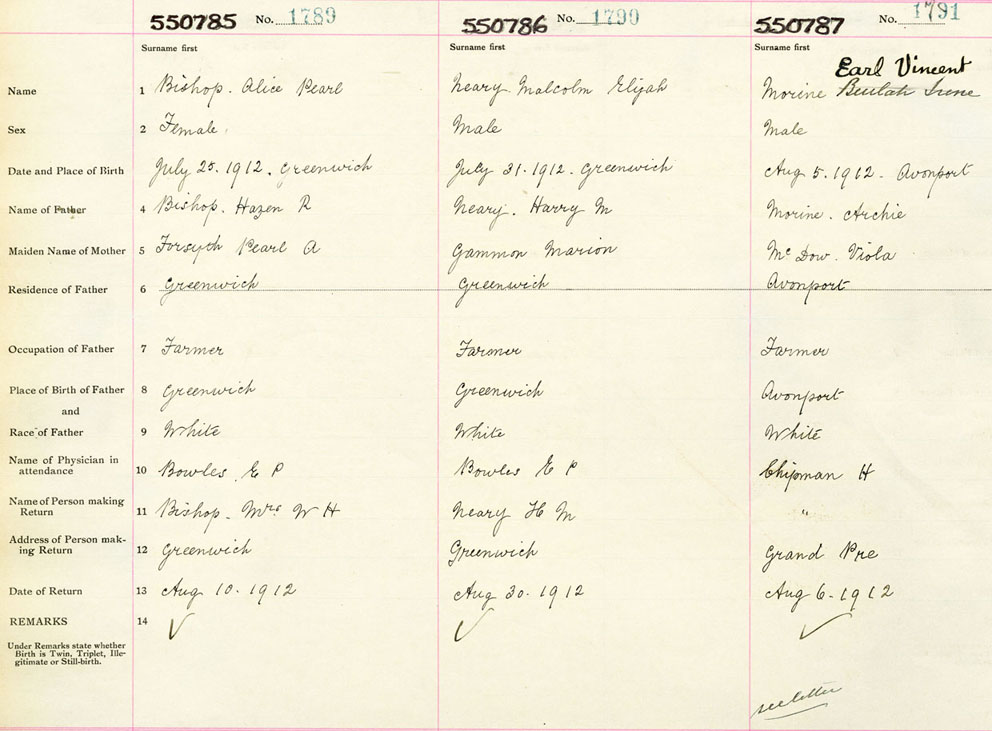 550785 No. 1789 550786 No. 1790 550787 No. 1791
Surname first Surname first Surname first
Earl Vincent
Name 1 Bishop. Alice Pearl Neary Malcolm Elijah Morine Beulah Irene
Sex 2 Female Male Male
Date and Place of Birth 3 July 25. 1912. Greenwich July 31. 1912. Greenwich Aug 5. 1912. Avonport
Name of Father 4 Bishop. Hazen R Neary. Harry M Morine. Archie
Maiden Name of Mother 5 Forsyth Pearl A Gammon Marion Mc Dow. Viola
Residence of Father 6 Greenwich Greenwich Avonport
Occupation of Father 7 Farmer Farmer Farmer
Place of Birth of Father 8 Greenwich Greenwich Avonport
and
Race of Father 9 White White White
Name of Physician in
attendance 10 Bowles E P Bowles E P Chipman H
Name of Person making
Return 11 Bishop. Mrs W H Neary H M "
Address of Person mak-
ing Return 12 Greenwich Greenwich Grand Pre
Date of Return 13 Aug 10. 1912 Aug 30. 1912 Aug 6. 1912
REMARKS 14 ✓ ✓ ✓
Under Remarks state whether
Birth is Twin, Triplet, Ille-
gitimate or Still-birth.
see letter